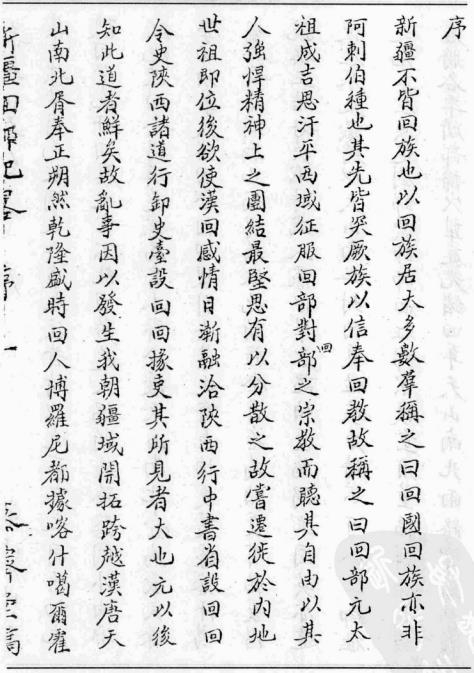 序
新疆不皆回族也以回族居大多數羣稱之曰回國回族亦非
阿剌伯種也其先皆突厥族以信奉回教故稱之曰回部元太
祖成吉思汗平西域征服回部對回部之宗教而聽其自由以其
人強悍精神上之團結最堅思有以分散之故嘗遷徙於內地
世祖即位後欲使漢回感情日漸融洽陝西行中書省設回回
令史陝西諸道行御史臺設回回掾吏其所見者大也元以後
知此道者鮮矣故亂事因以發生我朝疆域開拓跨越漢唐天
山南北胥奉正朔然乾隆盛時回人博羅尼都據喀什噶爾霍
新疆回部紀畧 序 一